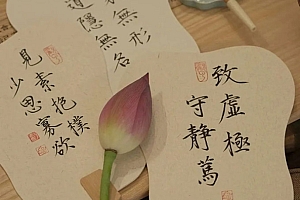 無形
道隱無名
見素抱樸
少思寡欲
致虛極
守靜篤